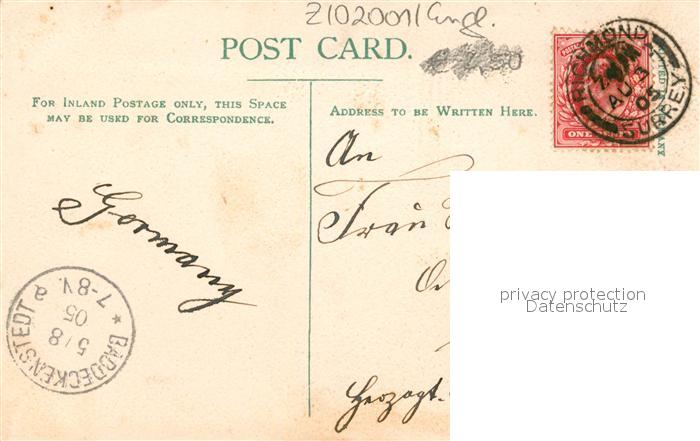 Z102001/Engl.
POST CARD.
FOR INLAND POSTAGE ONLY, THIS SPACE
MAY BE USED FOR CORRESPONDENCE.
ADDRESS TO BE WRITTEN HERE.
RICHMOND
AU 3
05
SURREY
ONE PENNY
An
Frau
Germany
Herzogt.
BADDECKENSTEDT
5/8
05
7-8V.
privacy protection
Datenschutz